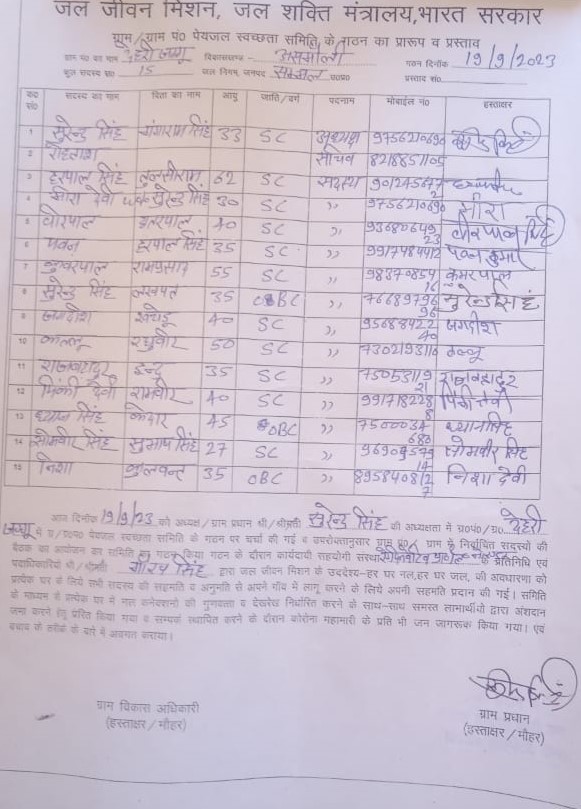 जल जीवन मिशन, जल शक्ति मंत्रालय,भारत सरकार
ग्राम/ग्राम पं० पेयजल स्वच्छता समिति के गठन का प्रारूप व प्रस्ताव
ग्राम पं० का नाम देहरी जग्गू विकासखण्ड असमोली गठन दिनांक 19/9/2023
कुल सदस्य सं० 15 जल निगम, जनपद सम्भल उ०प्र० प्रस्ताव सं०
क्र० सं० सदस्य का नाम पिता का नाम आयु जाति/वर्ग पदनाम मोबाईल नं० हस्ताक्षर
1 सुरेन्द्र सिंह गंगाराम सिंह 33 SC अध्यक्ष 9756210690
2 रोहताश सचिव 8218857105
3 हरपाल सिंह तुलसीराम 62 SC सदस्य
4 मीरा देवी w/o सुरेन्द्र सिंह 30 SC ,, 9756210690 मीरा
5 वीरपाल 40 SC ,, 9368064923 वीरपाल सिंह
6 पवन हरपाल सिंह 35 SC ,, पवन कुमार
7 कुंवरपाल रामप्रसाद 55 SC ,, 9837085416 कुमरपाल
8 सुरेन्द्र सिंह लखपत 35 OBC ,, 7668979696 सुरेन्द्र सिंह
9 जगदीश 40 SC ,, 9568842240 जगदीश
10 कल्लू रघुवीर 50 SC ,, 7302193116 कल्लू
11 राजबहादुर इन्दु 35 SC ,, 7505311921 राजबहादुर
12 पिंकी देवी रामवीर 40 SC ,, 9917182288 पिंकी देवी
13 ध्यान सिंह केदार 45 OBC ,, 7500034680 ध्यान सिंह
14 सोमवीर सिंह सुभाष सिंह 27 SC ,, 9690957914 सोमवीर सिंह
15 निशा कुलवन्त 35 OBC ,, 8958408127 निशा देवी
आज दिनांक 19/9/23 को अध्यक्ष/ग्राम प्रधान श्री/श्रीमती सुरेन्द्र सिंह की अध्यक्षता में ग्र०पं०/ग्र० देहरी
जग्गू में ग्र०/ग्र०पं० पेयजल स्वच्छता समिति के गठन पर चर्चा की गई व उपरोक्तानुसार ग्राम पं०/ ग्राम के निर्वाचित सदस्यों की
बैठक का आयोजन कर समिति का गठन किया गया गठन के दौरान कार्यदायी सहयोगी संस्था के प्रतिनिधि एवं
पदाधिकारियों श्री/श्रीमती गौरव सिंह द्वारा जल जीवन मिशन के उददेश्य–हर घर नल,हर घर जल, की अवधारणा को
प्रत्येक घर के लिये सभी सदस्य की सहमति व अनुमति से अपने गाँव में लागू करने के लिये अपनी सहमति प्रदान की गई। समिति
के माध्यम से प्रत्येक घर में नल कनेक्शनों की गुणवत्ता व देखरेख निर्धारित करने के साथ–साथ समस्त लाभार्थीयो द्वारा अंशदान
जमा करने हेतु प्रेरित किया गया व सम्पर्क स्थापित करने के दौरान कोरोना महामारी के प्रति भी जन जागरूक किया गया। एवं
बचाव के तरीके के बारे में अवगत कराया।
ग्राम विकास अधिकारी
(हस्ताक्षर/मौहर)
ग्राम प्रधान
(हस्ताक्षर/मौहर)